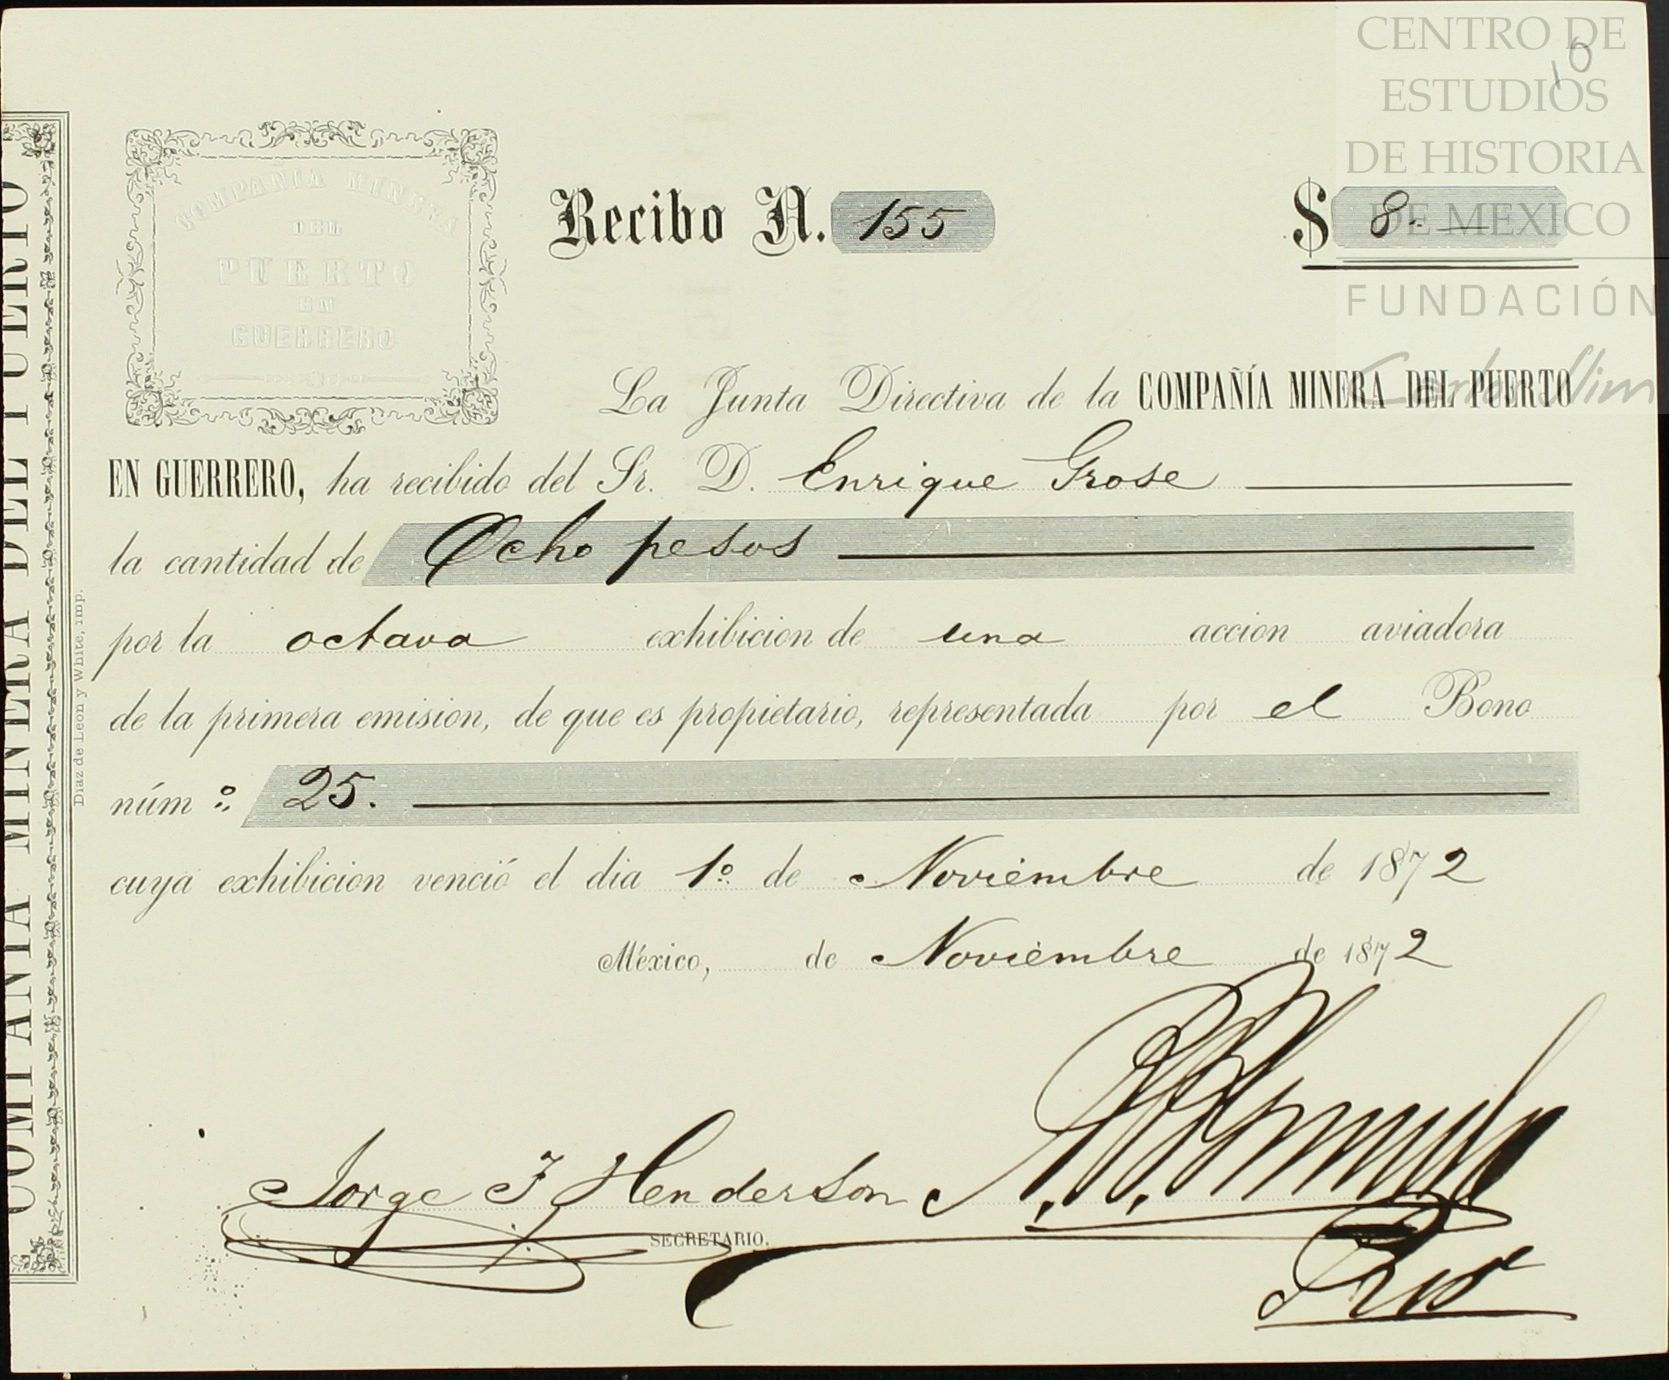 CENTRO DE
ESTUDIOS
DE HISTORIA
DE MEXICO
FUNDACIÓN
Carlos Slim
10
COMPAÑIA MINERA DEL PUERTO
Diaz de Leon y White, imp.
COMPAÑIA MINERA
DEL
PUERTO
EN
GUERRERO
Recibo N. 155 $ 8.
La Junta Directiva de la COMPAÑÍA MINERA DEL PUERTO
EN GUERRERO, ha recibido del Sr. D. Enrique Grose
la cantidad de Ocho pesos
por la octava exhibicion de una accion aviadora
de la primera emision, de que es propietario, representada por el Bono
núm.º: 25.
cuya exhibicion venció el dia 1º de Noviembre de 1872
México, de Noviembre de 1872
Jorge F Henderson
SECRETARIO.